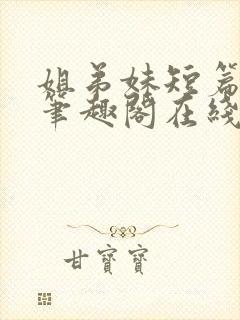 姐弟妹短篇
筆趣閣在綫
甘寶寶